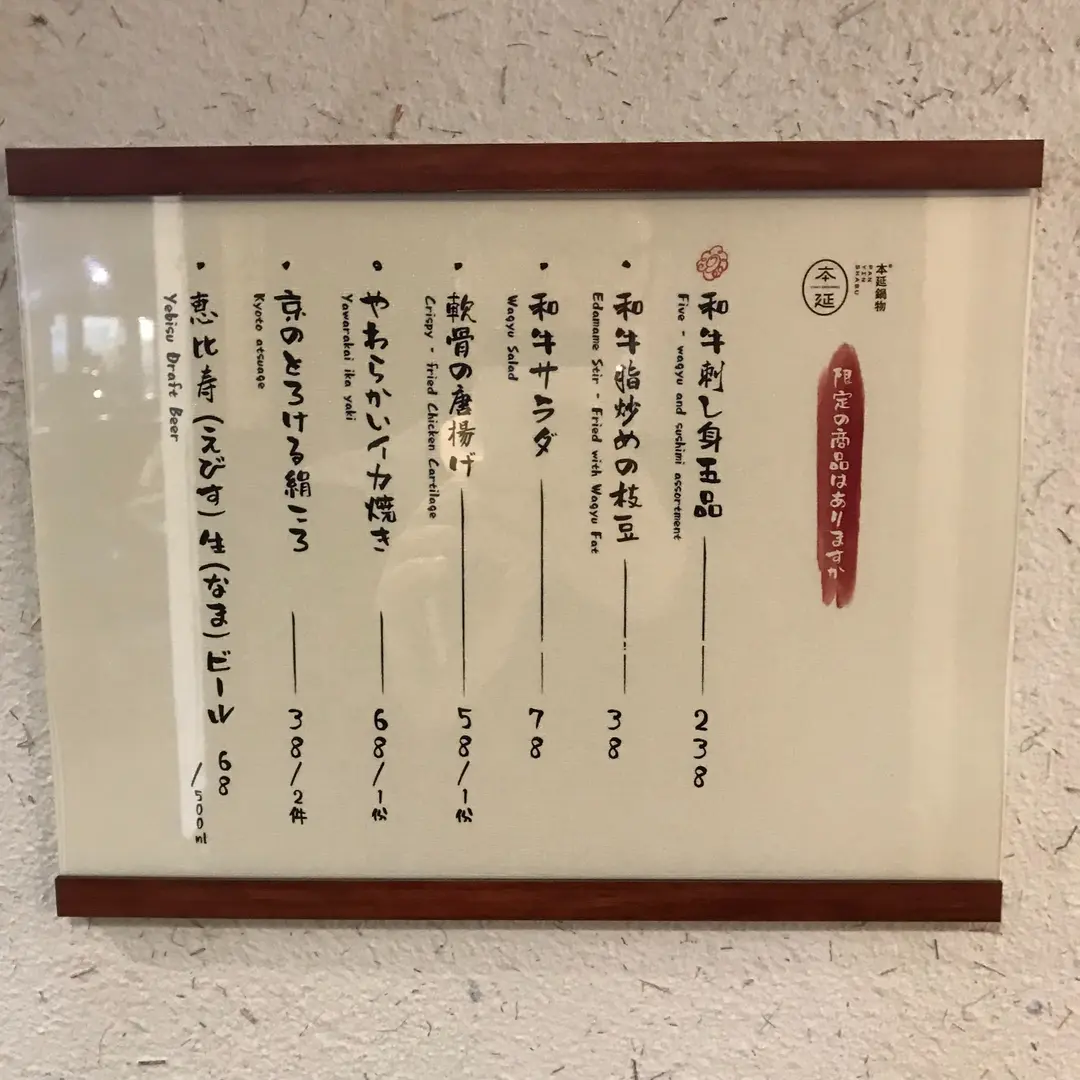 本延鍋物
YIN
SHABU
本延
限定の商品はありますか
和牛刺し身五品 238
Five - wagyu and sushimi assortment
・和牛脂炒めの枝豆 38
Edamame Stir - Fried with Wagyu Fat
・和牛サラダ 78
Wagyu Salad
・軟骨の唐揚げ 58/1份
Crispy - fried Chicken Cartilage
・やわらかいイカ焼き 68/1份
Yawarakai ika yaki
・京のとろける絹いろ 38/2件
Kyoto atsuage
・恵比寿(えびす)生(なま)ビール 68/500ml
Yebisu Draft Beer